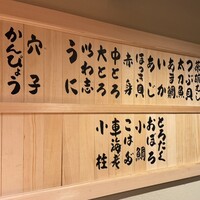 つぶ貝
太刀魚
あま鯛
いか
あじ
ほっき貝
赤身
中とろ
大とろ
いわ志
うに
穴子
かんぴょう
とろたく
おぼろ
小鯛
こはだ
車海老
小柱